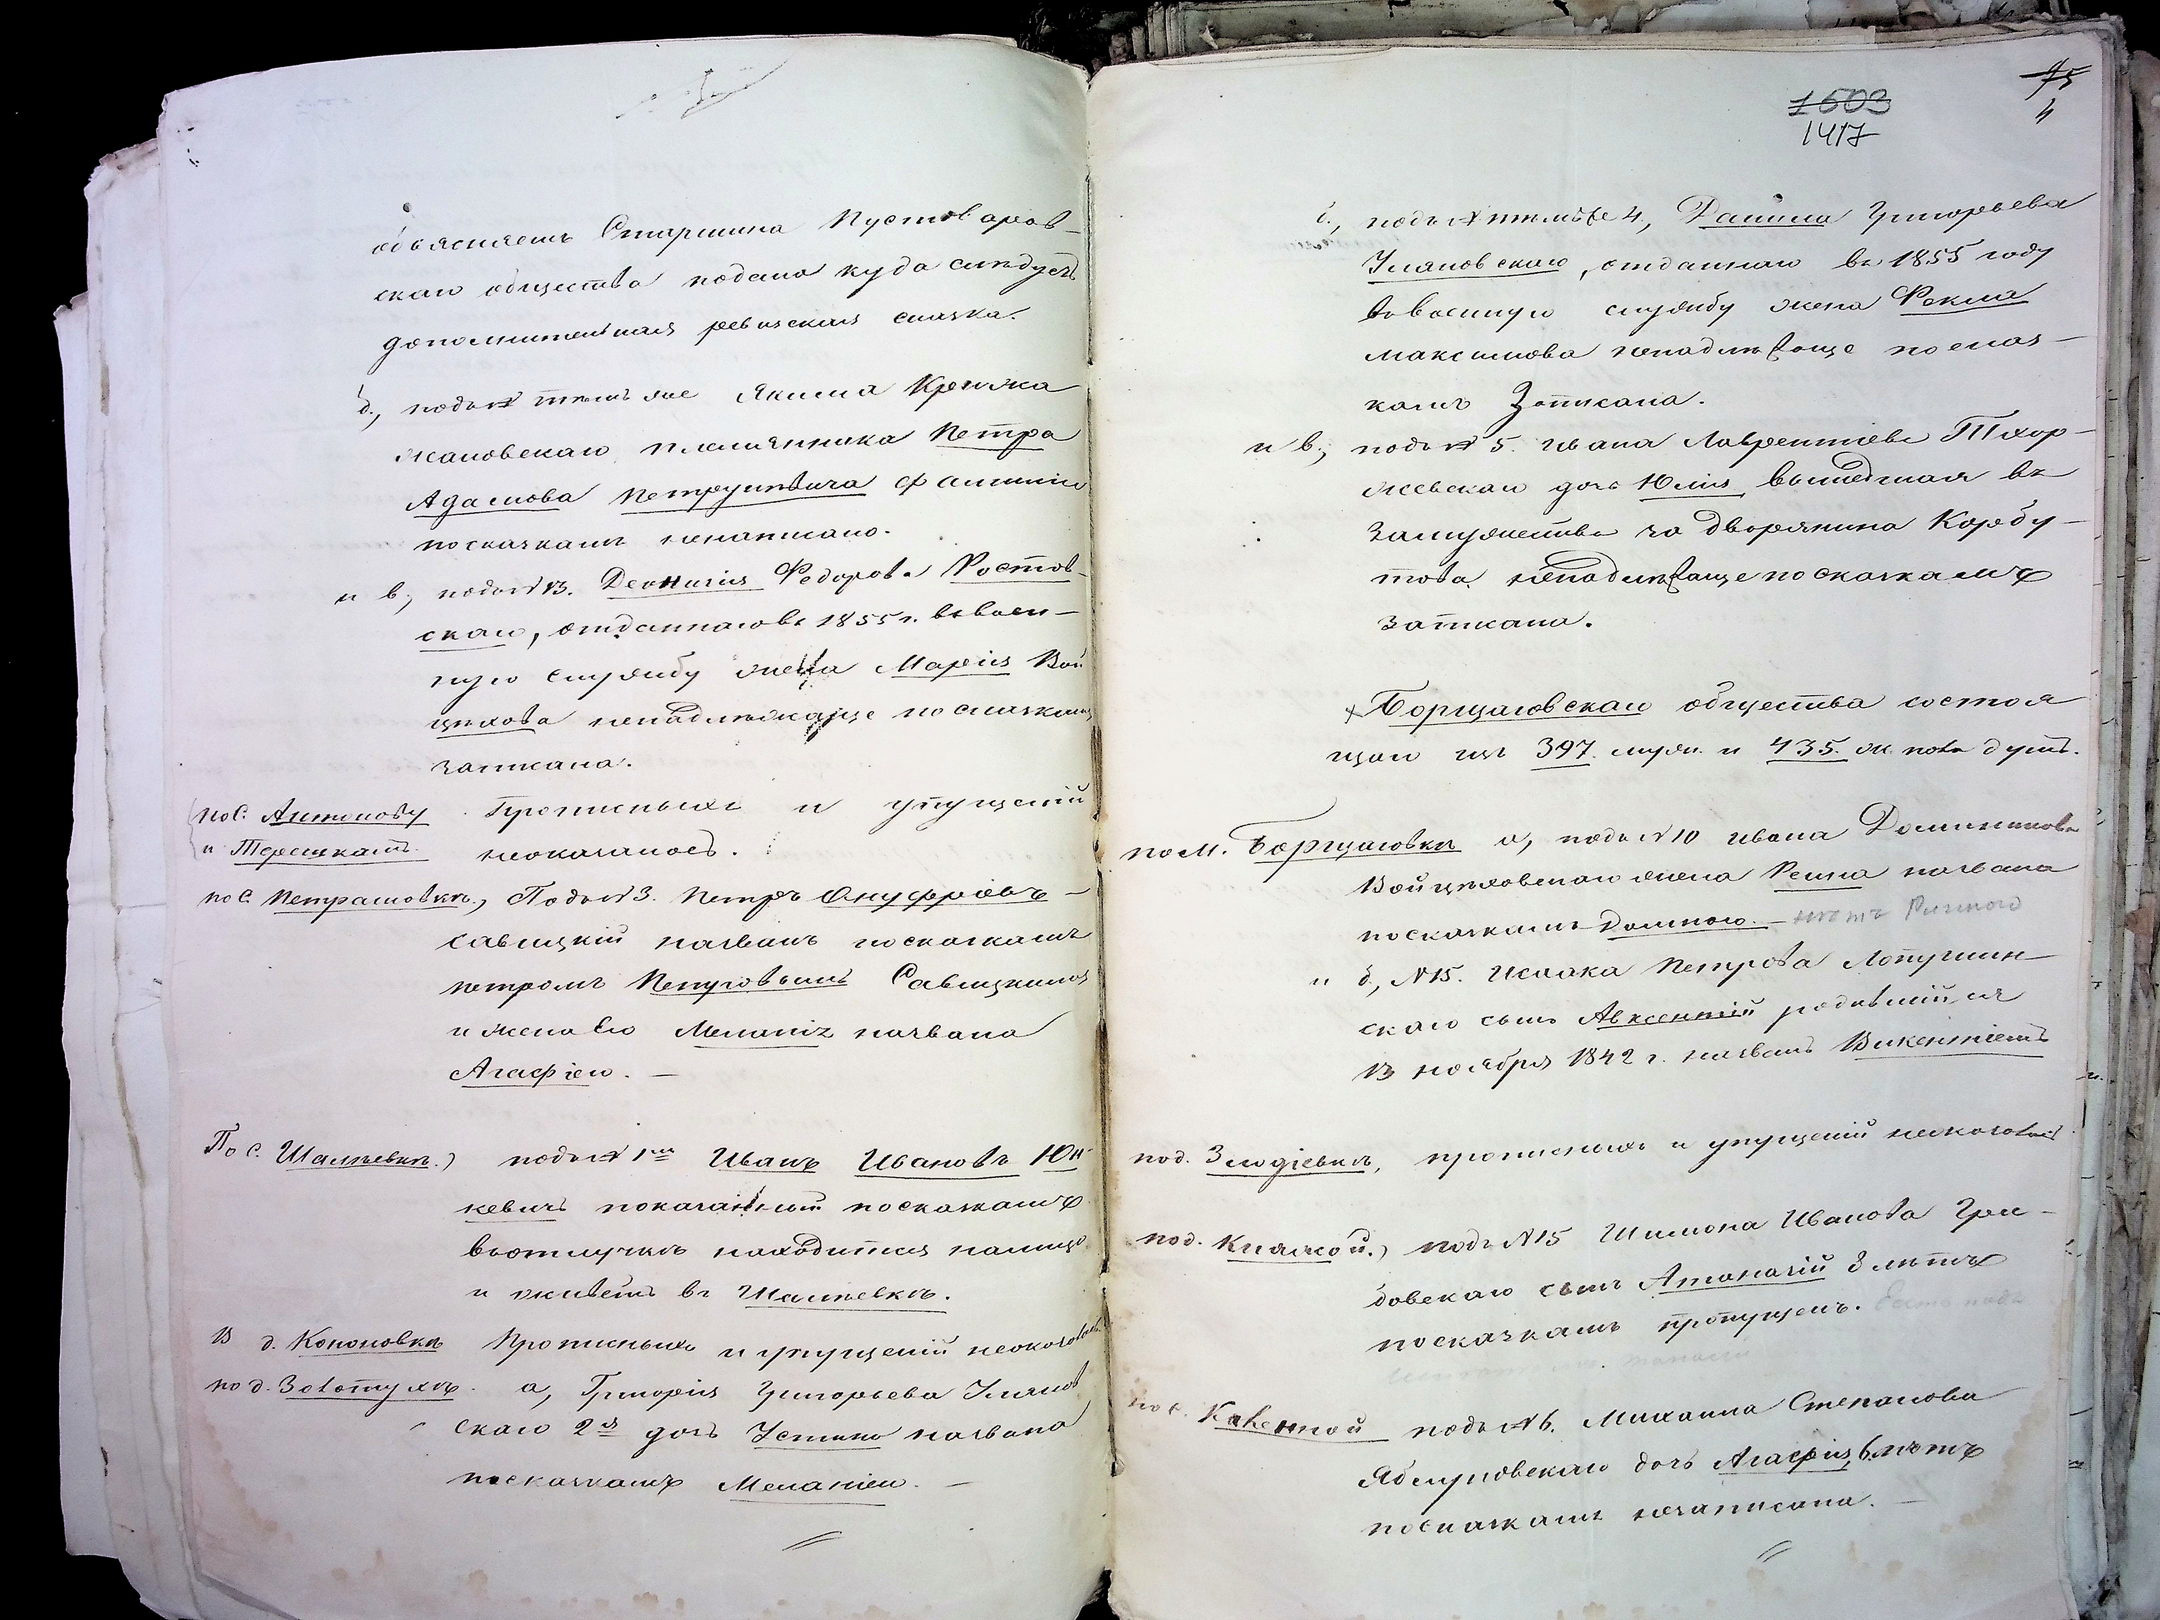 объясняетъ Старшина Пустоваров-
скаго общества подана куда слѣдуетъ
дополнительная ревизская сказка.
б., подъ № тѣмъ же Якима Кржи
жановскаго племянника Петра
Адамова Петрушевича фамиліи
по сказкамъ ненаписано.
и в., подъ № 13. Деонизія Федорова Ростов-
скаго, отданнаго въ 1855 г. въ воен-
ную службу жена Марія Вой
цѣхова ненадлежаще по сказкамъ
записана.
по с. Антонову Прописныхъ и упущеній
и Терешкамъ неоказалось.
по с. Петрашовкѣ, Подъ № 3. Петръ Онуфріевъ-
Савицкій названъ по сказкамъ
Петромъ Петровымъ Савицкимъ
и жена его Меланія названа
Агафіею. —
По с. Шалѣевкѣ, подъ № 1мъ Иванъ Ивановъ Юн-
кевичъ показанный по сказкамъ
въ отлучкѣ находится налицо
и живетъ въ Шалѣевкѣ.
В д. Кононовкѣ Прописныхъ и упущеній неоказалось
по д. Золотухѣ. а, Григорія Григорьева Улянов
скаго 2я дочь Устина названа
по сказкамъ Меланіею. —
1603
1417
4
б., подъ № тѣмъ же 4, Данила Григорьева
Уляновскаго, отданнаго въ 1855 году
въ военную службу жена Фекла
Максимова ненадлежаще по сказ-
камъ записана.
и в., подъ № 5. Ивана Лаврентіева Тхор-
жевскаго дочь Юлія, вышедшая въ
замужество за дворянина Корбу-
това, ненадлежаще по сказкамъ
записана.
Борщаговскаго общества состоя
щаго изъ 397 муж. и 435. ж. пола душъ.
по м. Борщаговкѣ а, подъ № 10 Ивана Доминикова
Войцѣховскаго жена
по сказкамъ Домною. —
и б, № 15. Исаака Петрова Лопушин-
скаго сынъ Авксентій родившійся
13 ноября 1842 г. названъ Викентіемъ
по д. прописныхъ и упущеній неоказалось
по д. Княжой, подъ № 15 Шимона Иванова Гра-
бовскаго сынъ Атаназій 3 лѣтъ
по сказкамъ пропущенъ.
по с. подъ № 6. Михаила Степанова
Яблуновскаго дочь Агафія, 6. лѣтъ
по сказкамъ незаписана. —